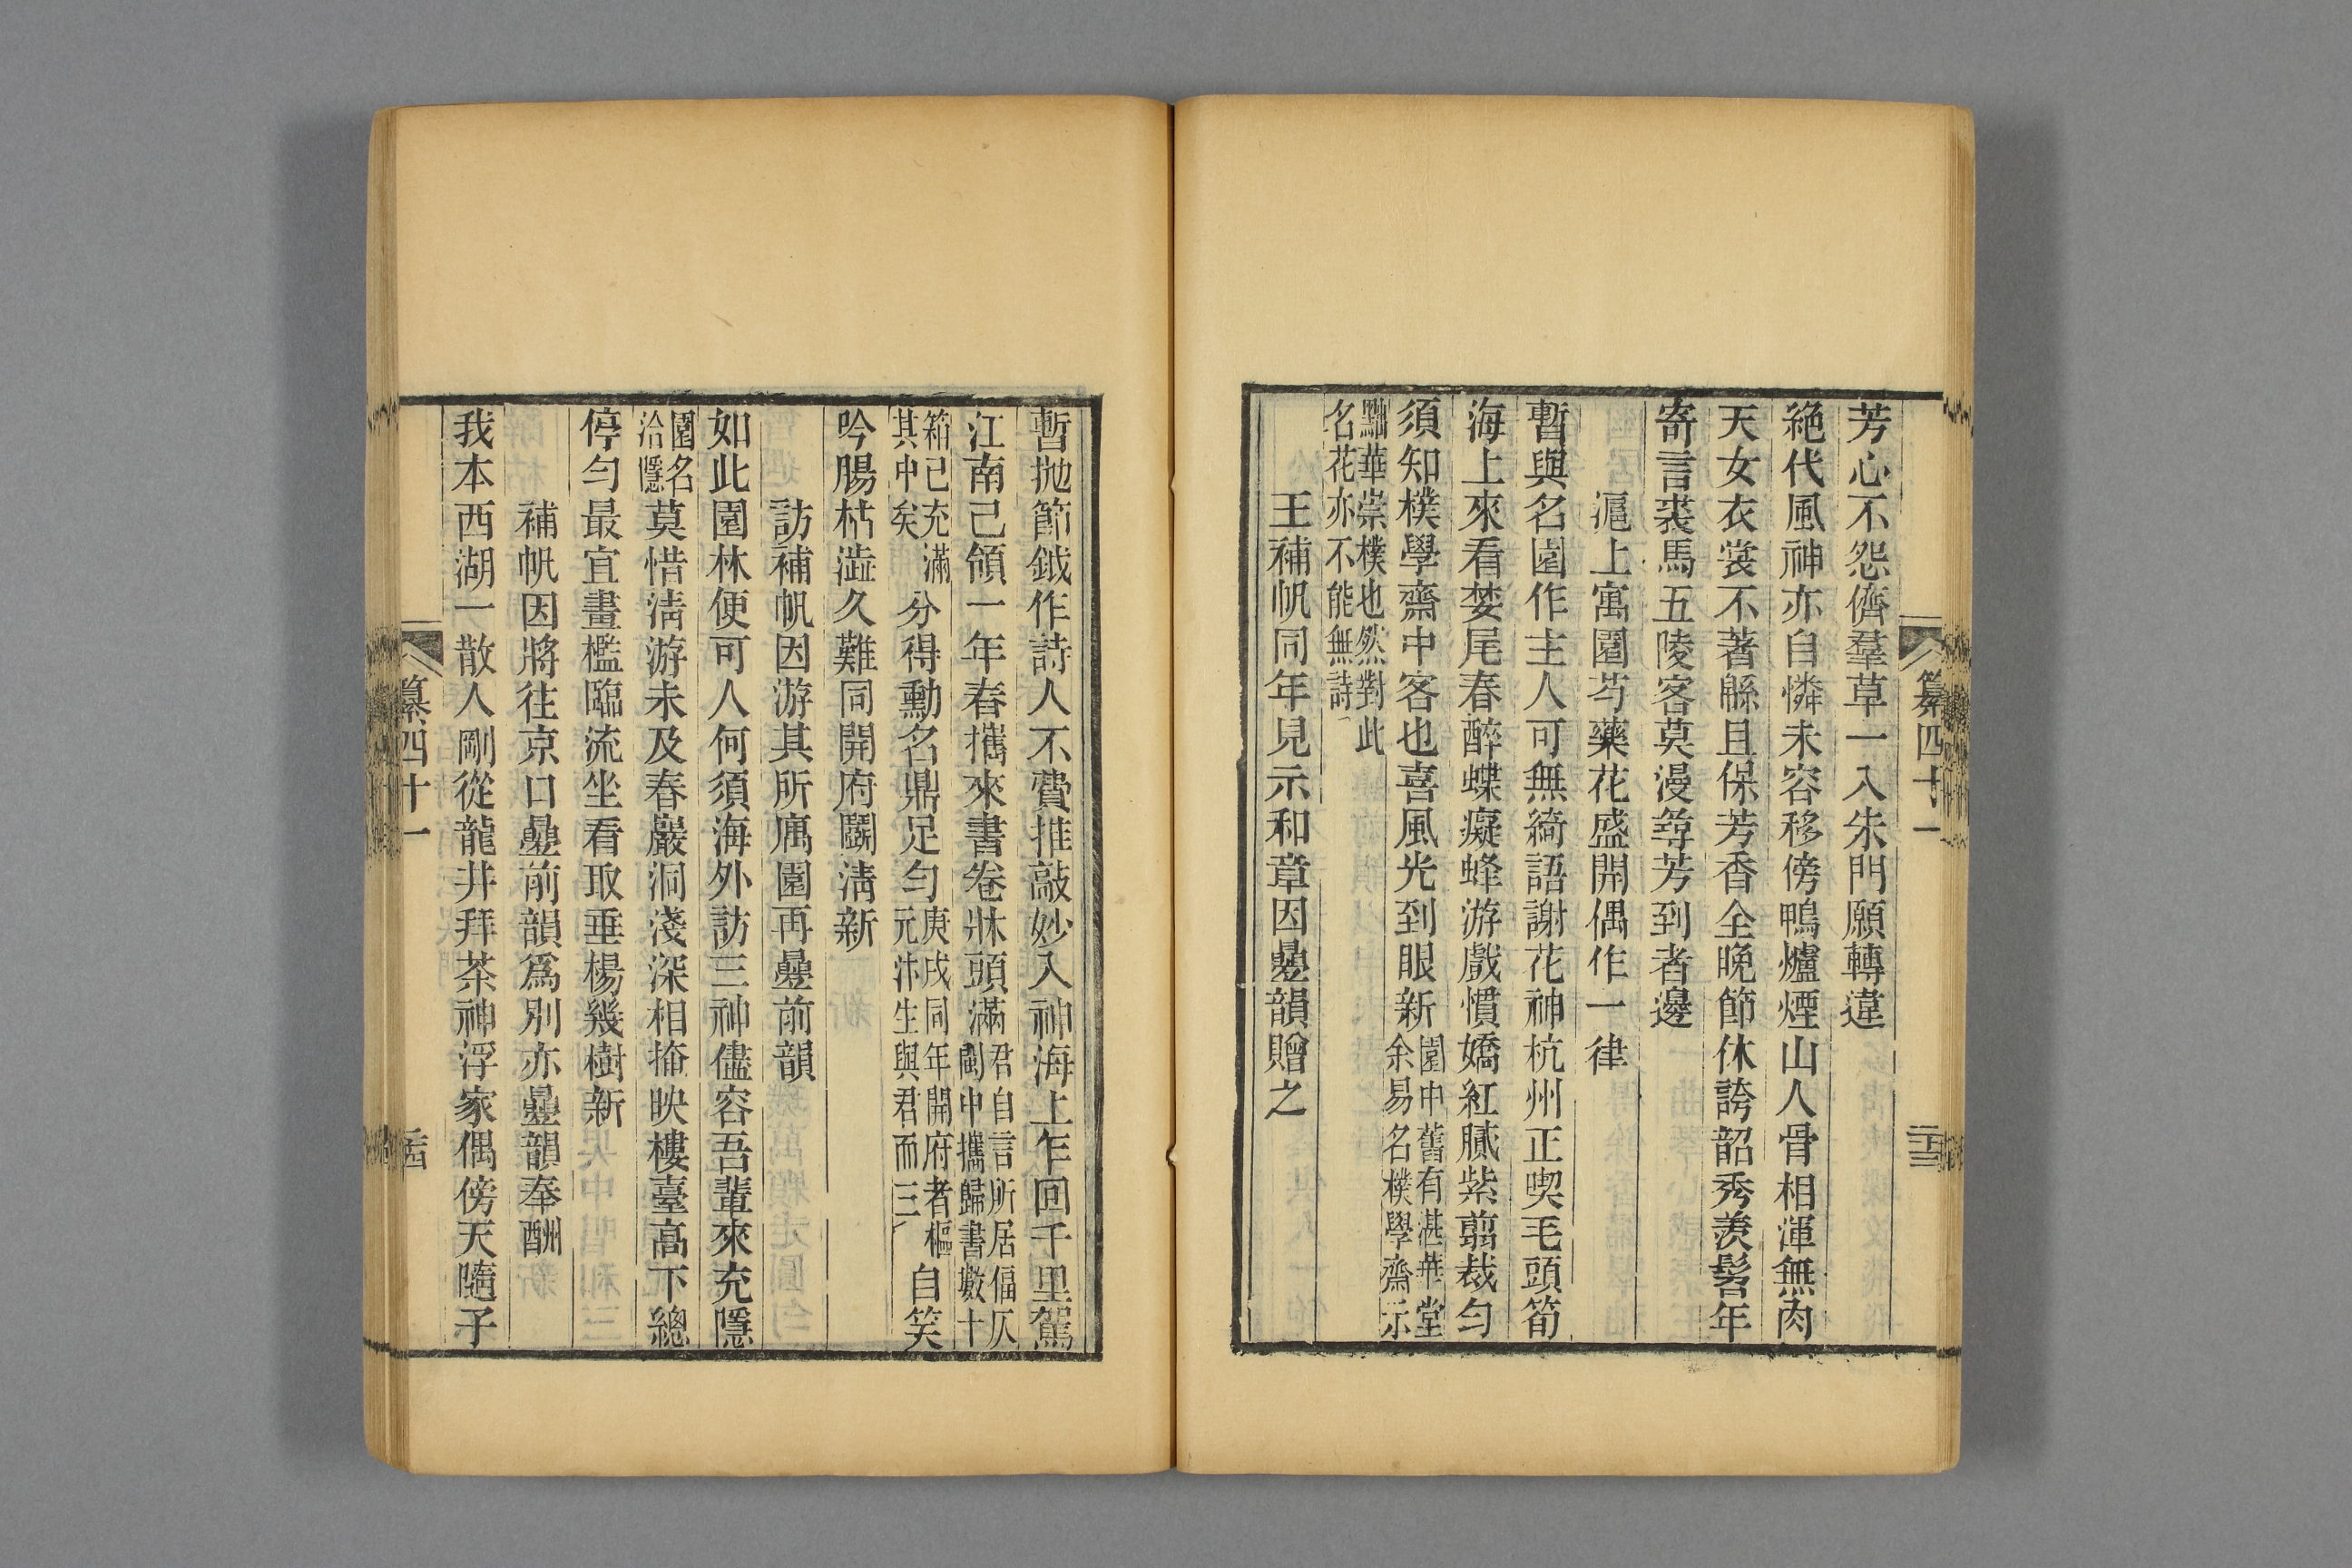 纂四十一
二十三
芳心不怨儕羣草一入朱門願轉違
絕代風神亦自憐未容移傍鴨爐煙山人骨相渾無肉
天女衣裳不著緜且保芳香全晚節休誇韶秀羨髫年
寄言裘馬五陵客莫漫尋芳到者邊
滬上寓園芍藥花盛開偶作一律
暫與名園作主人可無綺語謝花神杭州正喫毛頭筍
海上來看婪尾春醉蝶癡蜂游戲慣嬌紅膩紫翦裁勻
須知樸學齋中客也喜風光到眼新
園中舊有湛華堂
余易名樸學齋示
黜華崇樸也然對此
名花亦不能無詩
王補帆同年見示和章因疊韻贈之
暫抛節鉞作詩人不費推敲妙入神海上乍回千里駕
江南已領一年春攜來書卷牀頭滿
君自言所居偪仄
閩中攜歸書數十
箱已充滿
其中矣
分得勳名鼎足勻
庚戌同年開府者樞
元汴生與君而三
自笑
吟腸枯澀久難同開府鬭淸新
訪補帆因游其所寓園再疊前韻
如此園林便可人何須海外訪三神儘容吾輩來充隱
園名
洽隱
莫惜淸游未及春巖洞淺深相掩映樓臺高下總
停勻最宜畫檻臨流坐看取垂楊幾樹新
補帆因將往京口疊前韻爲別亦疊韻奉酬
我本西湖一散人剛從龍井拜茶神浮家偶傍天隨子
纂四十一
二十四